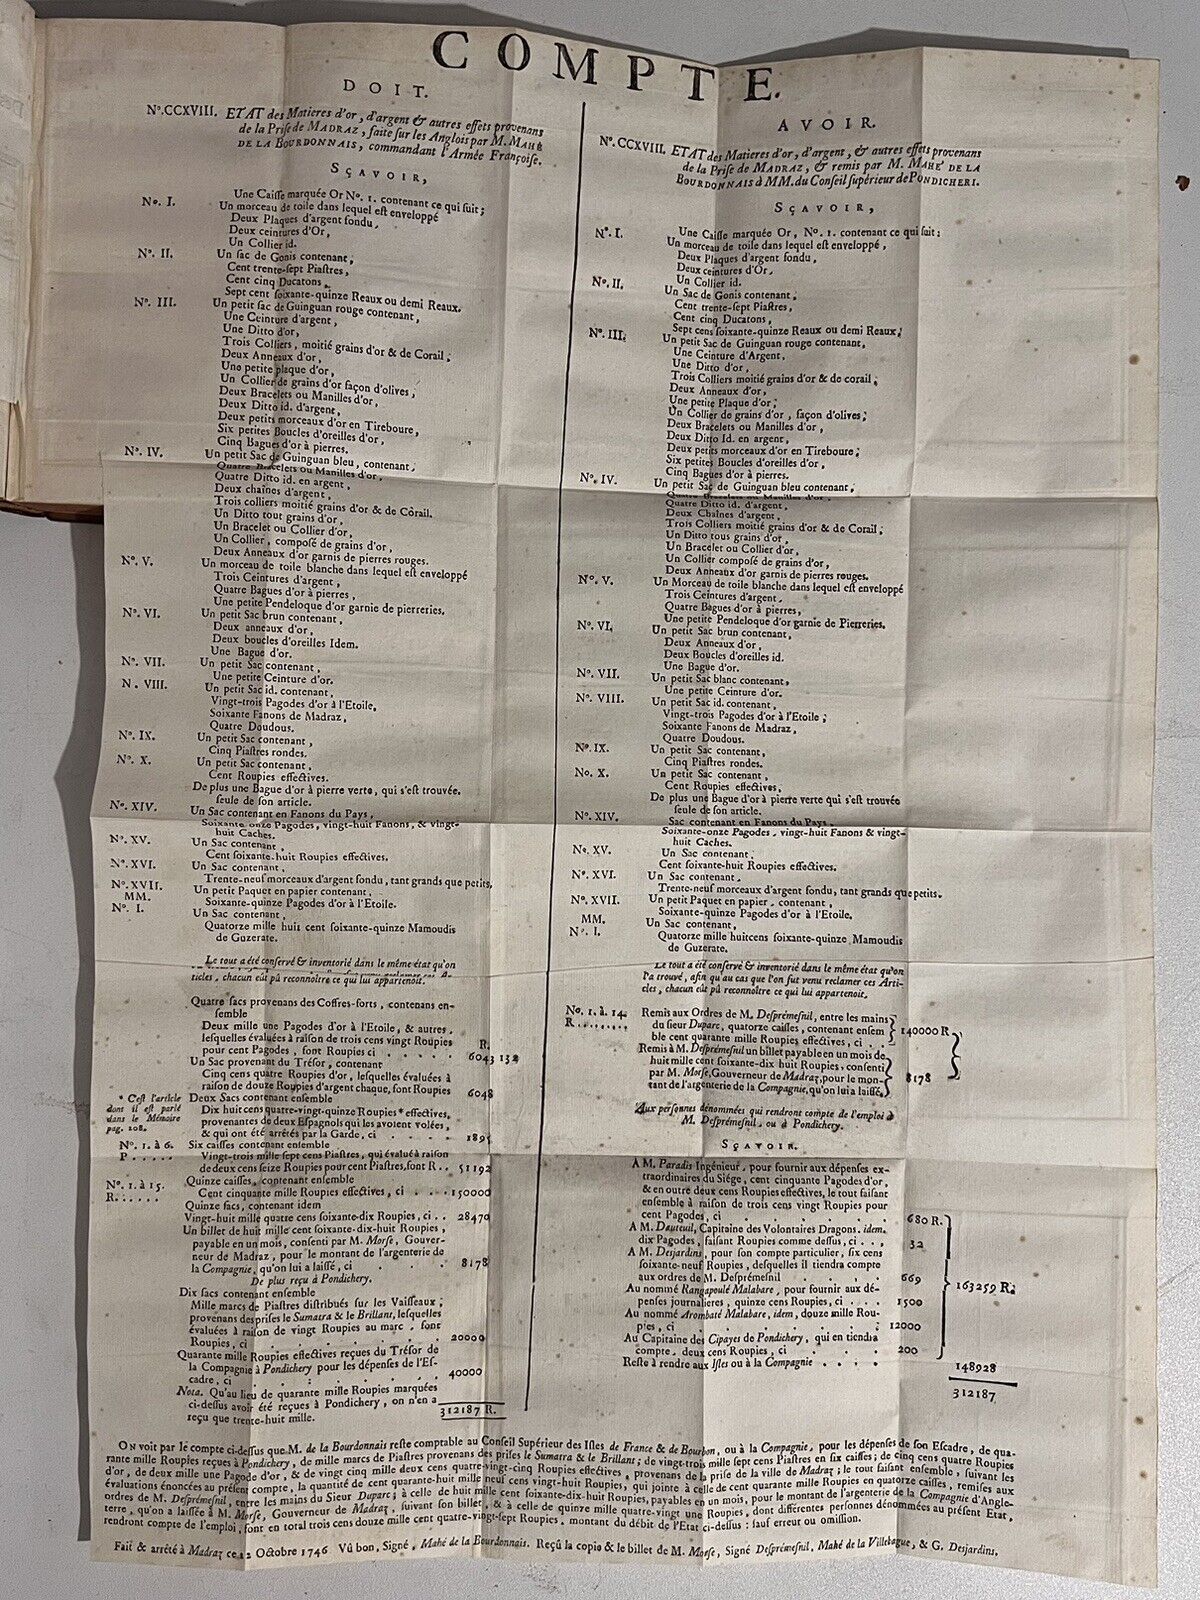 COMPTE.
DOIT.
No. CCXVIII. ETAT des Matieres d'or, d'argent & autres effets provenans
de la Prise de MADRAZ, faite sur les Anglois par M. MAHÉ
DE LA BOURDONNAIS, commandant l'Armée Françoise.
SÇAVOIR,
Une Caisse marquée Or No. 1. contenant ce qui suit;
No. I. Un morceau de toile dans lequel est enveloppé
Deux Plaques d'argent fondu,
Deux ceintures d'Or,
Un Collier id.
No. II. Un sac de Gonis contenant,
Cent trente-sept Piastres,
Cent cinq Ducatons,
Sept cent soixante-quinze Reaux ou demi Reaux.
No. III. Un petit sac de Guinguan rouge contenant,
Une Ceinture d'argent,
Une Ditto d'or,
Trois Colliers, moitié grains d'or & de Corail;
Deux Anneaux d'or,
Une petite plaque d'or,
Un Collier de grains d'or façon d'olives,
Deux Bracelets ou Manilles d'or,
Deux Ditto id. d'argent,
Deux petits morceaux d'or en Tireboure,
Six petites Boucles d'oreilles d'or,
Cinq Bagues d'or à pierres.
No. IV. Un petit Sac de Guinguan bleu, contenant,
Quatre Bracelets ou Manilles d'or,
Quatre Ditto id. en argent,
Deux chaînes d'argent,
Trois colliers moitié grains d'or & de Corail.
Un Ditto tout grains d'or,
Un Bracelet ou Collier d'or,
Un Collier, composé de grains d'or,
Deux Anneaux d'or garnis de pierres rouges.
No. V. Un morceau de toile blanche dans lequel est enveloppé
Trois Ceintures d'argent,
Quatre Bagues d'or à pierres,
Une petite Pendeloque d'or garnie de pierreries.
No. VI. Un petit Sac brun contenant,
Deux anneaux d'or,
Deux boucles d'oreilles Idem.
Une Bague d'or.
No. VII. Un petit Sac contenant,
Une petite Ceinture d'or.
N. VIII. Un petit Sac id. contenant,
Vingt-trois Pagodes d'or à l'Etoile,
Soixante Fanons de Madraz,
Quatre Doudous.
No. IX. Un petit Sac contenant,
Cinq Piastres rondes.
No. X. Un petit Sac contenant,
Cent Roupies effectives.
De plus une Bague d'or à pierre verte, qui s'est trouvée
seule de son article.
No. XIV. Un Sac contenant en Fanons du Pays,
Soixante-onze Pagodes, vingt-huit Fanons, & vingt-
huit Caches.
No. XV. Un Sac contenant,
Cent soixante-huit Roupies effectives.
No. XVI. Un Sac contenant,
Trente-neuf morceaux d'argent fondu, tant grands que petits,
No. XVII. Un petit Paquet en papier contenant,
Soixante-quinze Pagodes d'or à l'Etoile.
MM.
No. I. Un Sac contenant,
Quatorze mille huit cent soixante-quinze Mamoudis
de Guzerate.
Le tout a été conservé & inventorié dans le même état qu'on
ticles, chacun eût pû reconnoître ce qui lui appartenoit.
Quatre sacs provenans des Coffres-forts, contenans en-
semble
Deux mille une Pagodes d'or à l'Etoile, & autres.
lesquelles évaluées à raison de trois cens vingt Roupies
pour cent Pagodes, font Roupies ci . . . . R. 6043 132
Un Sac provenant du Trésor, contenant
Cinq cens quatre Roupies d'or, lesquelles évaluées à
raison de douze Roupies d'argent chaque, font Roupies 6048
* C'est l'article
dont il est parlé
dans le Mémoire
pag. 108.
Deux Sacs contenant ensemble
Dix huit cens quatre-vingt-quinze Roupies * effectives,
provenantes de deux Espagnols qui les avoient volées,
& qui ont été arrêtés par la Garde, ci . . . . 1895
No. 1. à 6. Six caisses contenant ensemble
P . . . . . Vingt-trois mille sept cens Piastres, qui évalué à raison
de deux cens seize Roupies pour cent Piastres, font R . . 51192
No. 1. à 15. Quinze caisses, contenant ensemble
R . . . . . . Cent cinquante mille Roupies effectives, ci . . . . 150000
Quinze sacs, contenant idem
Vingt-huit mille quatre cens soixante-dix Roupies, ci . . 28470
Un billet de huit mille cent soixante-dix-huit Roupies,
payable en un mois, consenti par M. Morse, Gouver-
neur de Madraz, pour le montant de l'argenterie de
la Compagnie, qu'on lui a laissé, ci . . . . 8178
De plus reçu à Pondichery.
Dix sacs contenant ensemble
Mille marcs de Piastres distribués sur les Vaisseaux;
provenans des prises le Sumatra & le Brillant, lesquelles
évaluées à raison de vingt Roupies au marc, font
Roupies, ci . . . . . . . 20000
Quarante mille Roupies effectives reçues du Trésor de
la Compagnie à Pondichery pour les dépenses de l'Es-
cadre, ci . . . . . . . . 40000
312187 R.
Nota. Qu'au lieu de quarante mille Roupies marquées
ci-dessus avoir été reçues à Pondichery, on n'en a
reçu que trente-huit mille.
AVOIR.
No. CCXVIII. ETAT des Matieres d'or, d'argent, & autres effets provenans
de la Prise de MADRAZ, & remis par M. MAHÉ DE LA
BOURDONNAIS à MM. du Conseil supérieur de PONDICHERI.
SÇAVOIR,
No. I. Une Caisse marquée Or, No. 1. contenant ce qui suit:
Un morceau de toile dans lequel est enveloppé,
Deux Plaques d'argent fondu,
Deux ceintures d'Or,
Un Collier id.
No. II. Un Sac de Gonis contenant;
Cent trente-sept Piastres,
Cent cinq Ducatons,
Sept cens soixante-quinze Reaux ou demi Reaux;
No. III. Un petit Sac de Guinguan rouge contenant,
Une Ceinture d'Argent,
Une Ditto d'or;
Trois Colliers moitié grains d'or & de corail;
Deux Anneaux d'or,
Une petite Plaque d'or;
Un Collier de grains d'or, façon d'olives;
Deux Bracelets ou Manilles d'or,
Deux Ditto Id. en argent,
Deux petits morceaux d'or en Tireboure;
Six petites Boucles d'oreilles d'or,
Cinq Bagues d'or à pierres.
No. IV. Un petit Sac de Guinguan bleu contenant;
Quatre Bracelets ou Manilles d'or,
Quatre Ditto id. d'argent,
Deux Chaînes d'argent,
Trois Colliers moitié grains d'or & de Corail;
Un Ditto tous grains d'or,
Un Bracelet ou Collier d'or,
Un Collier composé de grains d'or;
Deux Anneaux d'or garnis de pierres rouges.
No. V. Un Morceau de toile blanche dans lequel est enveloppé
Trois Ceintures d'argent,
Quatre Bagues d'or à pierres,
Une petite Pendeloque d'or garnie de Pierreries.
No. VI. Un petit Sac brun contenant,
Deux Anneaux d'or,
Deux Boucles d'oreilles id.
Une Bague d'or.
No. VII. Un petit Sac blanc contenant,
Une petite Ceinture d'or.
No. VIII. Un petit Sac id. contenant,
Vingt-trois Pagodes d'or à l'Etoile;
Soixante Fanons de Madraz,
Quatre Doudous.
No. IX. Un petit Sac contenant,
Cinq Piastres rondes.
No. X. Un petit Sac contenant,
Cent Roupies effectives,
De plus une Bague d'or à pierre verte qui s'est trouvée
seule de son article.
No. XIV. Sac contenant en Fanons du Pays,
Soixante-onze Pagodes, vingt-huit Fanons & vingt-
huit Caches.
No. XV. Un Sac contenant;
Cent soixante-huit Roupies effectives.
No. XVI. Un Sac contenant,
Trente-neuf morceaux d'argent fondu, tant grands que petits.
No. XVII. Un petit Paquet en papier contenant,
Soixante-quinze Pagodes d'or à l'Etoile,
MM. Un Sac contenant,
No. I. Quatorze mille huitcens soixante-quinze Mamoudis
de Guzerate.
Le tout a été conservé & inventorié dans le même état qu'on
l'a trouvé, afin qu'au cas que l'on fut venu reclamer ces Arti-
cles, chacun eût pû reconnoître ce qui lui appartenoit.
No. 1. à 14. Remis aux Ordres de M. Desprémesnil, entre les mains
R. . . . . . . . du sieur Duparc, quatorze caisses, contenant ensem
ble cent quarante mille Roupies effectives, ci . . 140000 R
Remis à M. Desprémesnil un billet payable en un mois de
huit mille cent soixante-dix huit Roupies, consenti
par M. Morse, Gouverneur de Madraz, pour le mon-
tant de l'argenterie de la Compagnie, qu'on lui a laissé, 8178
Aux personnes dénommées qui rendront compte de l'emploi à
M. Desprémesnil, ou à Pondichery.
SÇAVOIR.
A M. Paradis Ingénieur, pour fournir aux dépenses ex-
traordinaires du Siége, cent cinquante Pagodes d'or,
& en outre deux cens Roupies effectives, le tout faisant
ensemble à raison de trois cens vingt Roupies pour
cent Pagodes, ci . . . . . 680 R.
A M. Dauteuil, Capitaine des Volontaires Dragons, idem.
dix Pagodes, faisant Roupies comme dessus, ci . . . 32
A M. Desjardins, pour son compte particulier, six cens
soixante-neuf Roupies, desquelles il tiendra compte
aux ordres de M. Desprémesnil . . . . . 669
Au nommé Rangapoulé Malabare, pour fournir aux dé-
penses journalieres, quinze cens Roupies, ci . . . 1500
Au nommé Arombaté Malabare, idem, douze mille Rou-
pies, ci . . . . . . . . 12000
Au Capitaine des Cipayes de Pondichery, qui en tiendra
compte, deux cens Roupies, ci . . . . . 200
163259 R.
Reste à rendre aux Isles ou à la Compagnie . . . . 148928
312187
ON voit par le compte ci-dessus que M. de la Bourdonnais reste comptable au Conseil Supérieur des Isles de France & de Bourbon, ou à la Compagnie, pour les dépenses de son Escadre, de qua-
rante mille Roupies reçues à Pondichery, de mille marcs de Piastres provenans des prises le Sumatra & le Brillant; de vingt-trois mille sept cens Piastres en six caisses; de cinq cens quatre Roupies
d'or, de deux mille une Pagode d'or, & de vingt cinq mille deux cens quatre-vingt-cinq Roupies effectives, provenans de la prise de la ville de Madraz; le tout faisant ensemble, suivant les
évaluations énoncées au présent compte, la quantité de cent quarante-huit mille neuf cens vingt-huit Roupies, qui jointe à celle de cent quarante mille Roupies en quatorze caisses, remises aux
ordres de M. Desprémesnil, entre les mains du Sieur Duparc; à celle de huit mille cent soixante-dix-huit Roupies, payables en un mois, pour le montant de l'argenterie de la Compagnie d'Angle-
terre, qu'on a laissée à M. Morse, Gouverneur de Madraz, suivant son billet, & à celle de quinze mille quatre-vingt-une Roupies, dont différentes personnes dénommées au présent Etat,
rendront compte de l'emploi, font en total trois cens douze mille cent quatre-vingt-sept Roupies, montant du débit de l'Etat ci-dessus: sauf erreur ou omission.
Fait & arrêté à Madraz ce 22 Octobre 1746 Vû bon, Signé, Mahé de la Bourdonnais. Reçû la copie & le billet de M. Morse, Signé Desprémesnil, Mahé de la Villebague, & G. Desjardins,